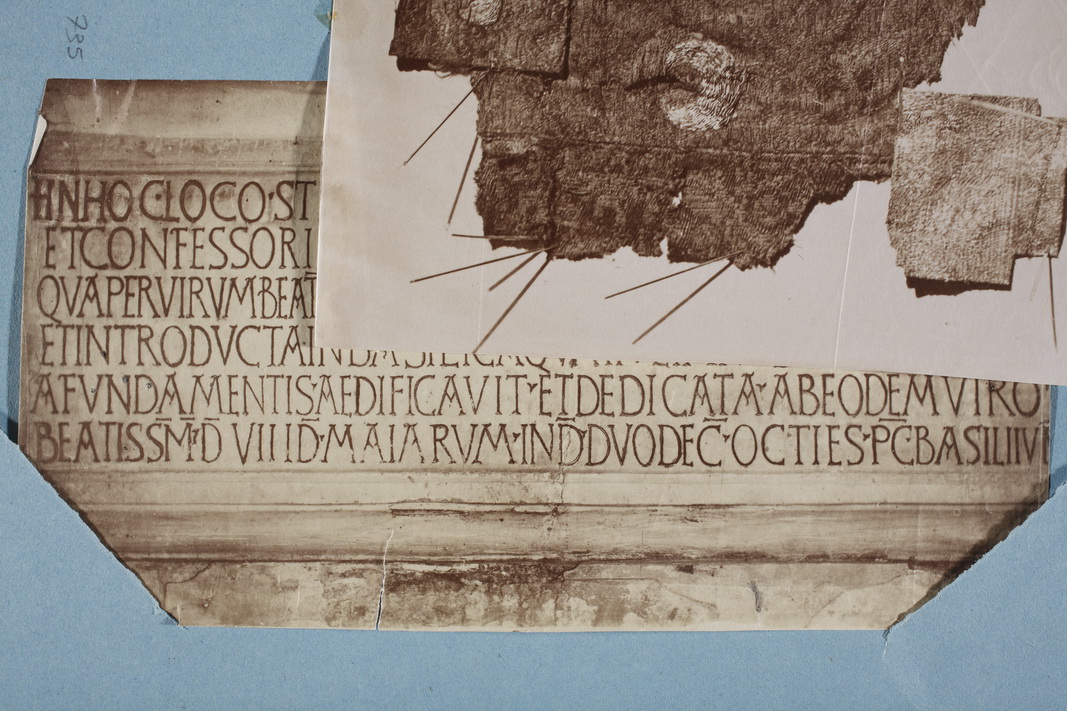 735
+INHOCLOCO·ST
ETCONFESSORI
QVAPERVIRVMBEAT
ETINTRODVCTAINBASILICA
AFVNDAMENTIS·AEDIFICAVIT·ETDEDICATA·ABEODEMVIRO
BEATISSM̅·D̅ VIIID̅·MAIARVM·IND̅DVODEC̅·OCTIES·PC̅BASILIIVI